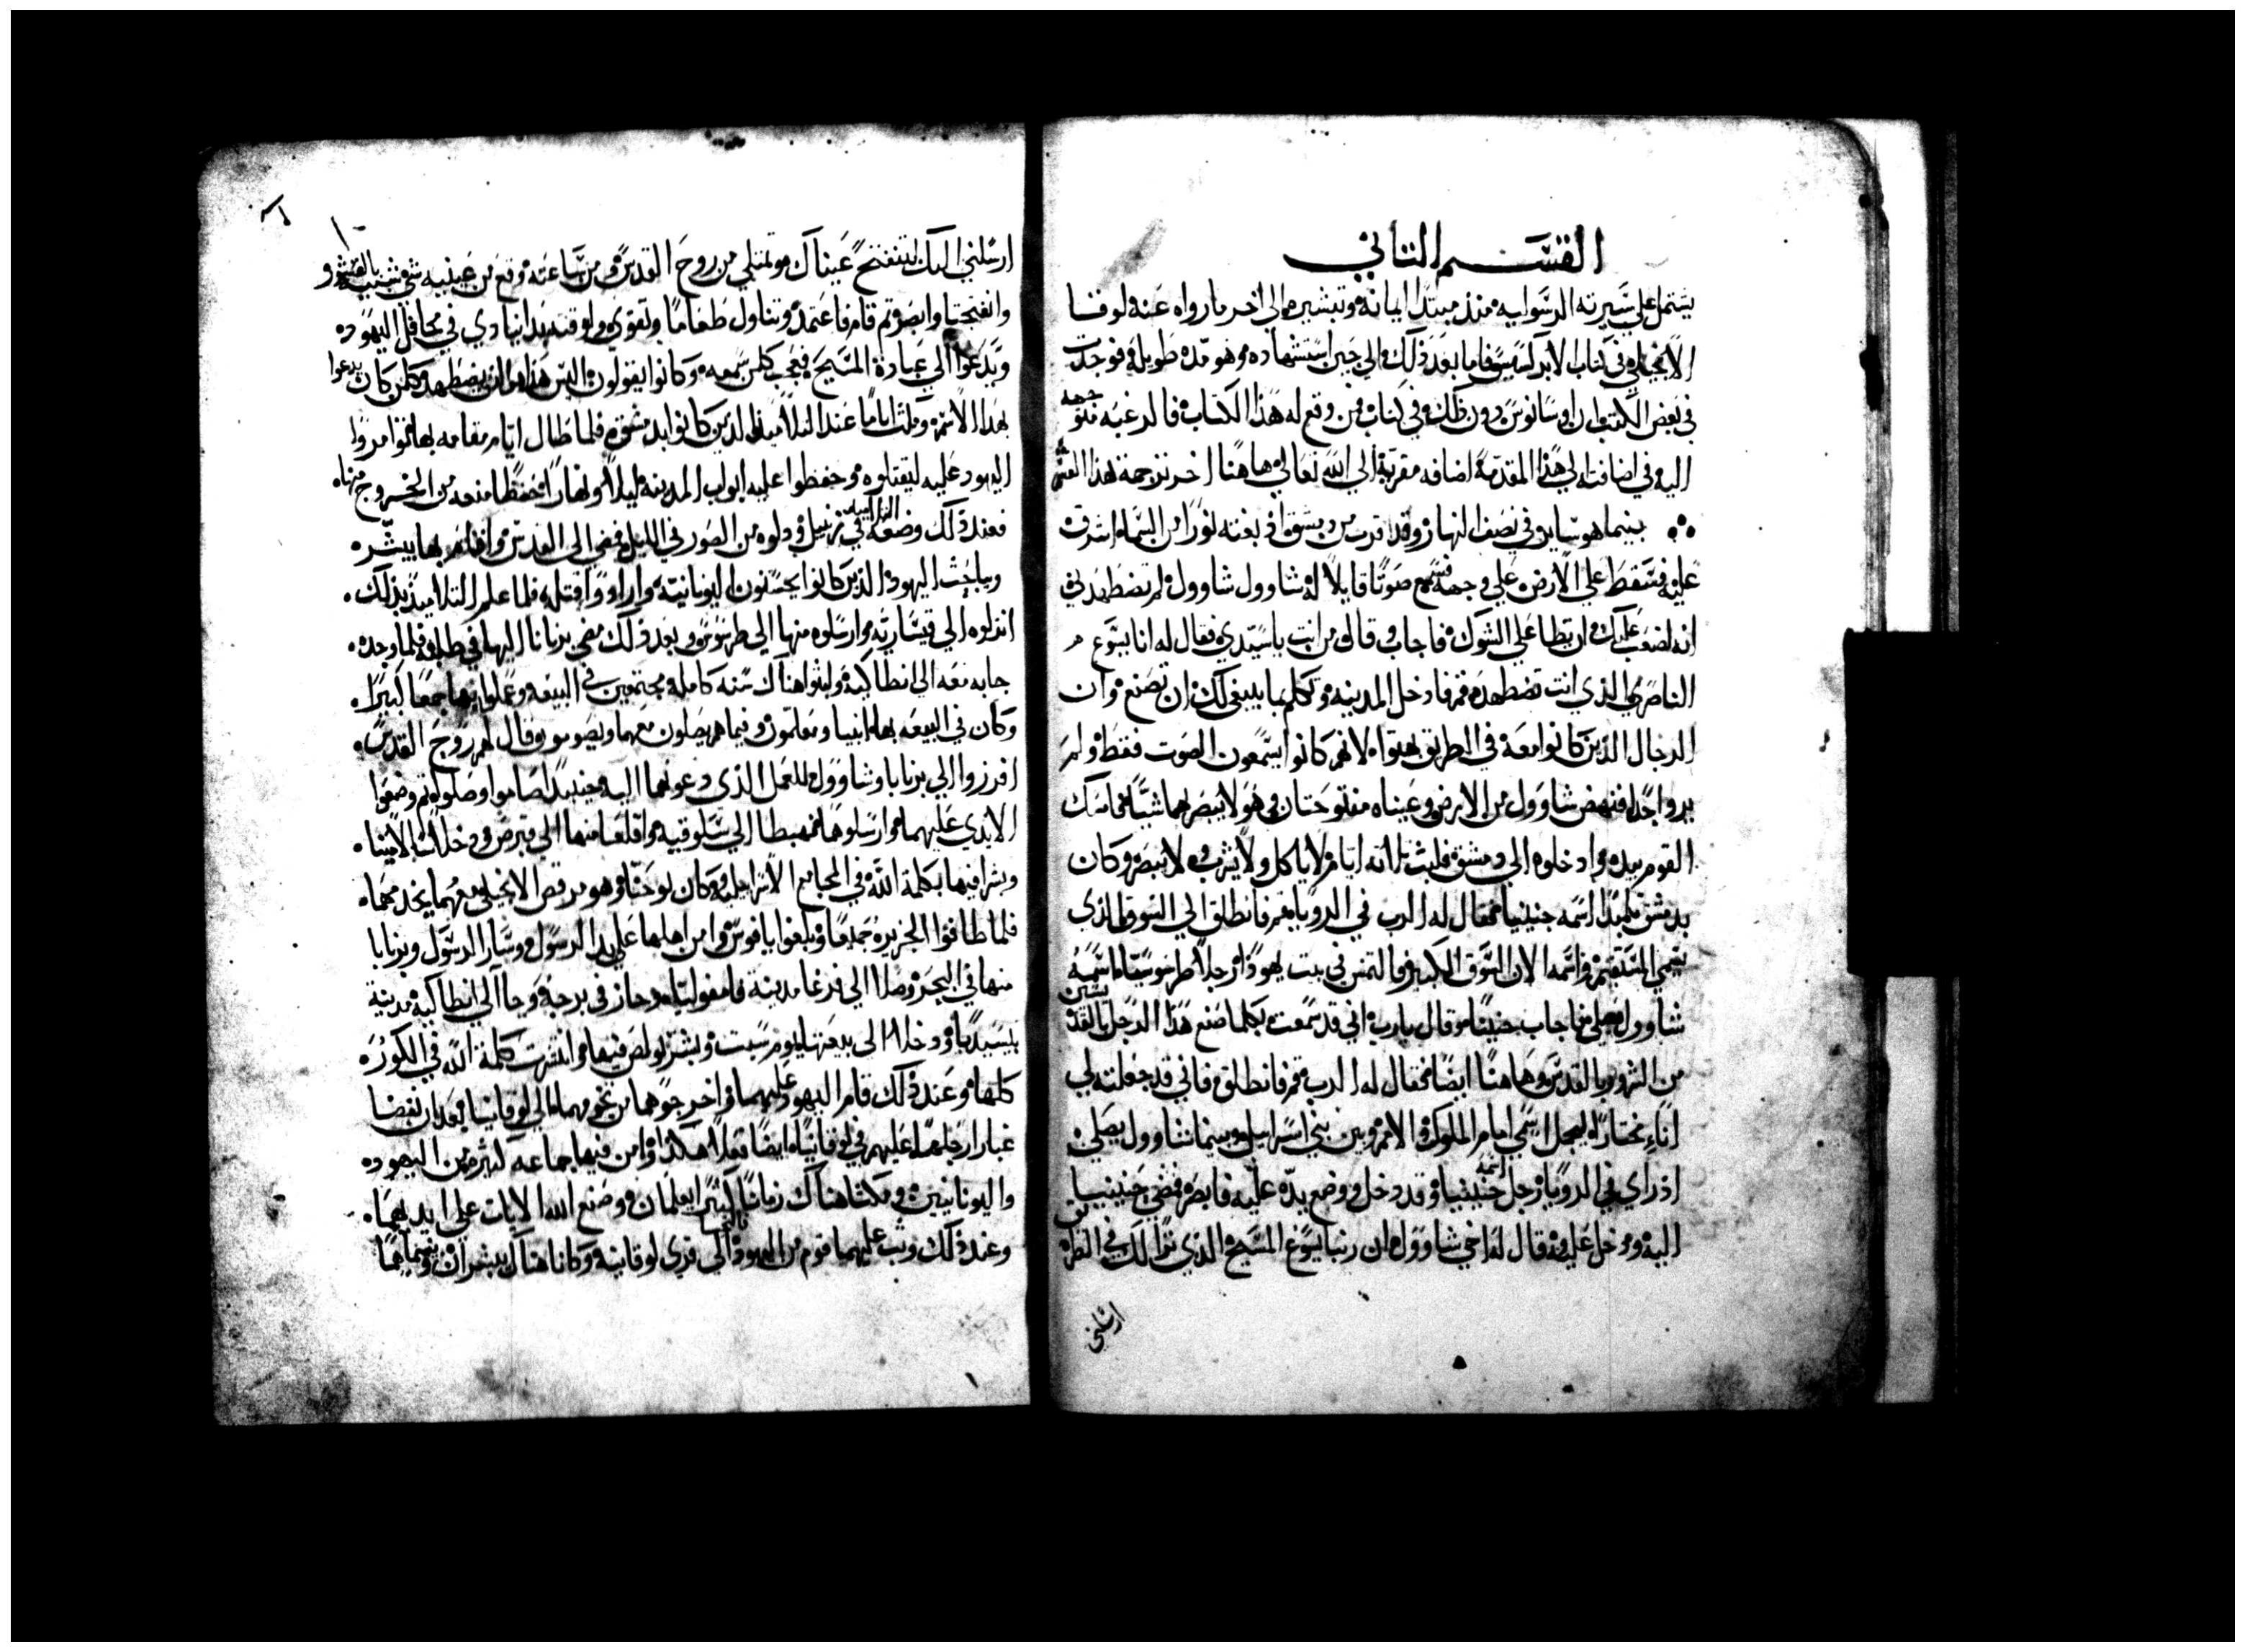 القسم الثاني
يشتمل علي سيرته الرسوليه منذ مبتدا ايمانه وتبشيره الي اخر ما رواه عنه لوقا
الانجيلي في كتاب الابركسيس فاما بعد ذلك الي حين استشهاده وهو مده طويله فوجدت
في بعض الكتب دون ذلك في كتاب فمن وقع له هذا الكتاب فالرغبه متوجهه
اليه في اضافته الي هذا المقدمة اضافه مقربة الي الله تعالي هاهنا اخر ترجمة هذا القسم
بينما هو ساير في نصف النهار وقد قرب من دمشق اذ بغته نورا من السماء اشرق
عليه فسقط علي الارض علي وجهه فسمع صوتا قايلا له شاوول شاوول لم تضطهدني
انه لصعب عليك ان تطا علي الشوك فاجاب وقال من انت ياسيدي فقال له انا يسوع
الناصري الذي انت تضطهده قم فادخل المدينه وتكلم بما ينبغي لك ان تصنع وان
الرجال الذين كانوا معه في الطريق بهتوا لانهم كانوا يسمعون الصوت فقط ولم
يروا احدا فنهض شاوول من الارض وعيناه مفتوحتان وهو لا يبصر بهما شيا فامسك
القوم بيده وادخلوه الي دمشق فلبث ثلاثه ايام لا ياكل ولا يشرب ولا يبصر وكان
بدمشق تلميذا اسمه حنينيا فقال له الرب في الرويا قم فانطلق الي السوق الذي
يسمي المستقيم واسمه الان السوق الكبير والتمس في بيت يهوذا رجلا طرسوسيا اسمه
شاوول يصلي فاجاب حنينا وقال يارب اني قد سمعت بكلما صنع هذا الرجل بالقديسين
من الشرور بالقدس وهاهنا ايضا فقال له الرب قم فانطلق فاني قد جعلته لي
اناء مختارا ليحمل اسمي امام الملوك والامم وبين بني اسرايل وبينما شاوول يصلي
اذ راي في الرويا رجل اسمه حنينيا وقد دخل ووضع يده عليه فابصر فمضي حنينيا
اليه ودخل عليه وقال له اخي شاوول ان ربنا يسوع المسيح الذي ترا لك في الطريق
ارسلني
١٠
ارسلني اليك لتنفتح عيناك وتمتلي من روح القدس ومن ساعته وقع من عينيه شي شبيه بالقشور
وانفتحتا وابصر ثم قام فاعتمد وتناول طعاما وتقوي ولوقته بدا ينادي في محافل اليهود
ويدعوا الي عبادة المسيح فعجب كلمن سمعه وكانوا يقولون اليس هذا هو الذي يضطهد كلمن كان يدعوا
بهذا الاسم ومكث اياما عند التلاميذ الذين كانوا بدمشق فلما طال ايام مقامه بها توامروا
اليهود عليه ليقتلوه وحفظوا عليه ابواب المدينه ليلا ونهارا تحفظا منعه من الخروج منها
فعند ذلك وضعه التلاميذ في زنبيل ودلوه من الصور في الليل فمضي الي القدس واقام بها يبشر
ويباحث اليهود الذين كانوا يحسنون اليونانية وارادوا قتله فلما علم التلاميذ بذلك
انزلوه الي قيسارية وارسلوه منها الي طرسوس وبعد ذلك مضي برنابا اليها في طلبه فلما وجده
جابه معه الي انطاكيه ولبثوا هناك سنه كامله مجتمعين في البيعه وعلموا بها جمعا كبيرا
وكان في البيعه بها انبيا ومعلمون وفيما هم يصلون معهما ويصومون قال لهم روح القدس
افرزوا لي برنابا وشاوول للعمل الذي دعوتهما اليه وحينيذ صاموا وصلوا ثم وضعوا
الايدي عليهما وارسلوهما فهبطا الي سلوقيه واقلعا منها الي قبرص ودخلا
وبشرا فيها بكلمة الله في المجامع الاسرايليه وكان يوحنا وهو مرقص الانجيلي معهما يخدمهما
فلما طافوا الجزيرة جميعا وبلغوا بافوس وامن اهلها علي يد الرسول وسار الرسول وبرنابا
منها في البحر وصلا الي فرغا مدينة بامفوليا وجاز في برجه وجاا الي انطاكية مدينة
بيسيديا ودخلا الي بيعتها يوم سبت وبشر بولص فيها وانتشرت كلمة الله في الكوره
كلها وعند ذلك قام اليهود عليهما واخرجوهما من تخومهما الي لوقانيا بعد ان نفضا
غبار ارجلهما عليهم وفي لوقانيا ايضا فعلا هكذا وامن فيها جماعه كثيره من اليهود
واليونانيين ومكثا هناك زمانا كبيرا يعلمان وصنع الله الايات علي ايديهما
وعند ذلك وثب عليهما قوم من اليهود الي قري لوقانيه وكانا هناك يبشران وفيما هما